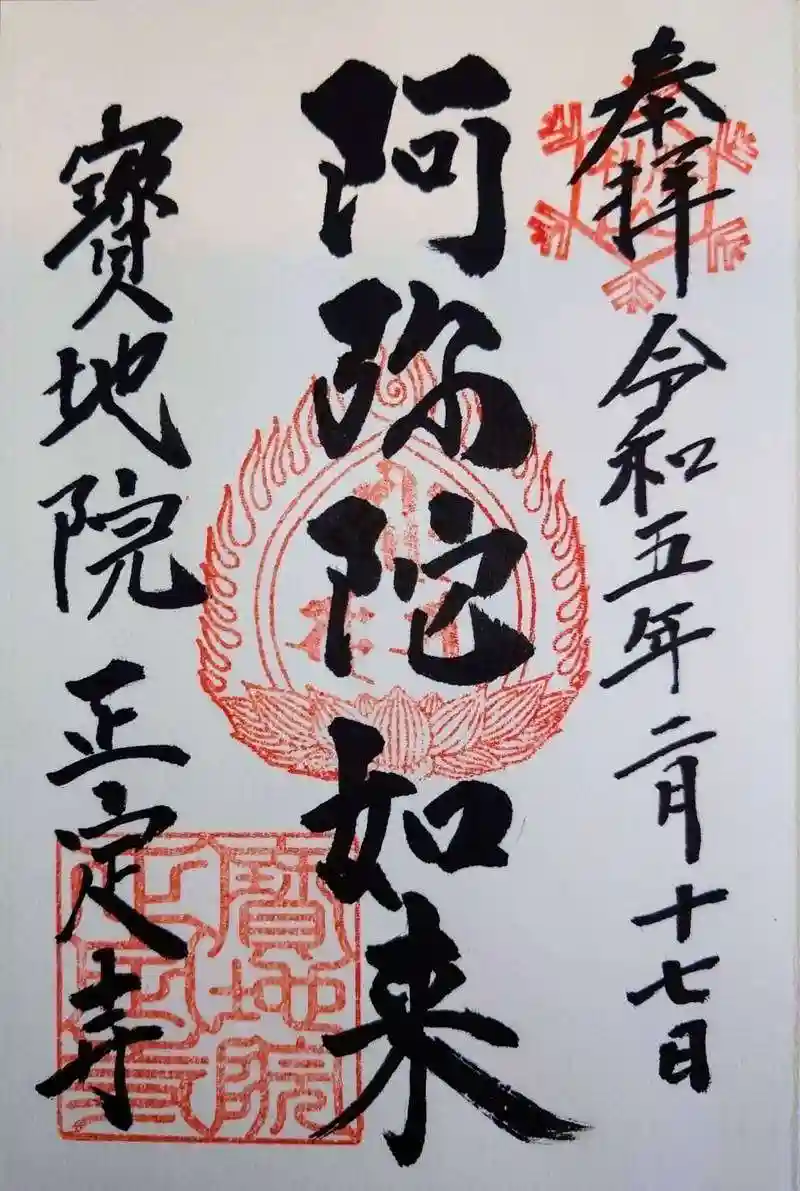 奉拝
令和五年二月十七日
阿弥陀如来
寳地院 正定寺
寳地院
正定寺